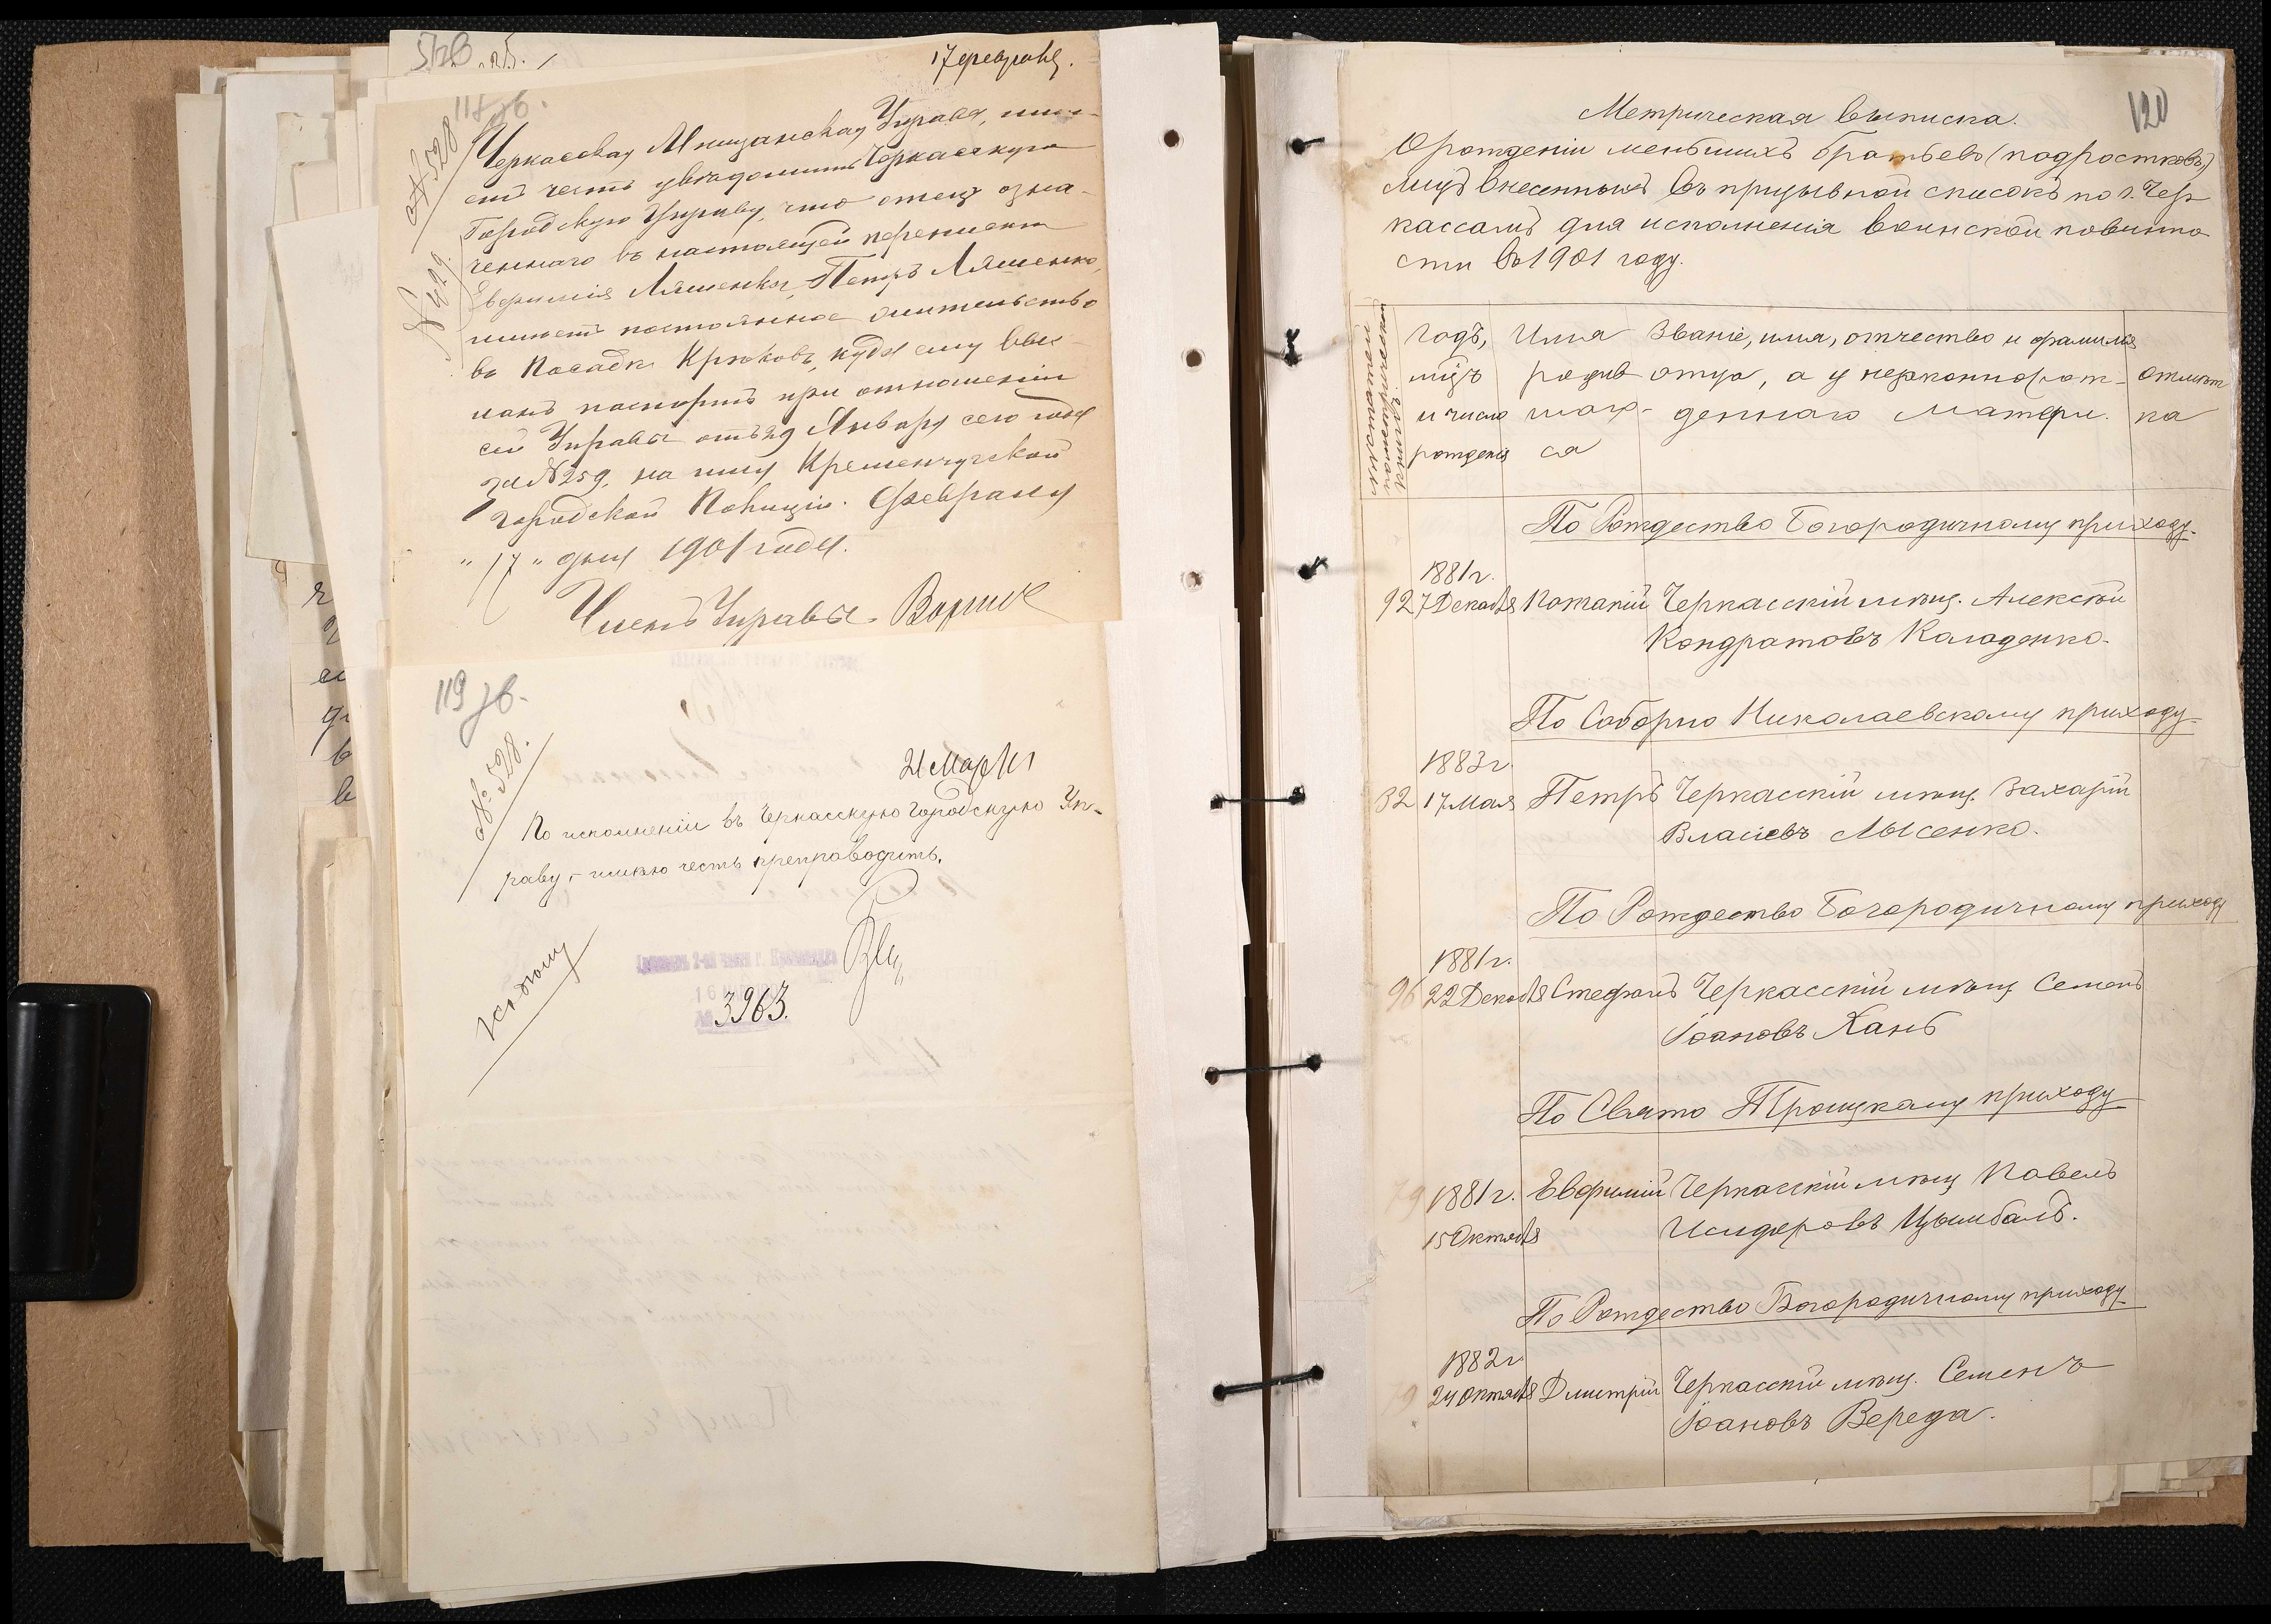 17 февраля.
118 об.
№ 528
№ 429.
Черкасская Мещанская Управа, имѣ-
етъ честь увѣдомить Черкасскую
Городскую Управу, что отецъ озна-
ченнаго въ настоящей перепискѣ
Евфимія Ляшенка, Петръ Ляшенко,
имѣетъ постоянное жительство
въ Посадѣ Крюковѣ, куда ему выс-
ланъ паспортъ при отношеніи
сей Управы отъ 29 Января сего года
за № 259, на имя Кременчугской
городской Полиціи. Февраля
"17" дня 1901 года.
Членъ Управы.
119 об.
№ 528.
21 Марта
По исполненіи въ Черкасскую Городскую Уп-
раву, имѣю честь препроводить.
3963.
120
Метрическая выписка.
О рожденіи меньшихъ братьевъ (подростковъ)
лицъ внесенныхъ въ призывной списокъ по г. Чер
кассамъ для исполненія воинской повинно
сти въ 1901 году.
№ статьи
по метрической
книгѣ
Годъ, Имя Званіе, имя, отчество и фамилія
мѣц родив отца, а у незаконнорож- Отмѣт
и число шаго- деннаго матери. ка
рожденія ся
По Рождество Богородичному приходу.
1881 г.
92 7 Декабря Потапій Черкасскій мѣщ. Алексѣй
Кондратовъ Колоденко.
По Соборно Николаевскому приходу
1883 г.
32 17 Мая Петръ Черкасскій мѣщ. Захарій
Власіевъ Лысенко.
По Рождество Богородичному приходу
1881 г.
96 22 Декабря Стефанъ Черкасскій мѣщ Семенъ
Іоановъ Хань
По Свято Троицкому приходу
79 1881 г. Евфимій Черкасскій мѣщ Павелъ
15 Октября Исидоровъ Цымбалъ.
По Рождество Богородичному приходу
1882 г
79 24 Октября Дмитрій Черкасскій мѣщ. Семенъ
Іоановъ Вереда.